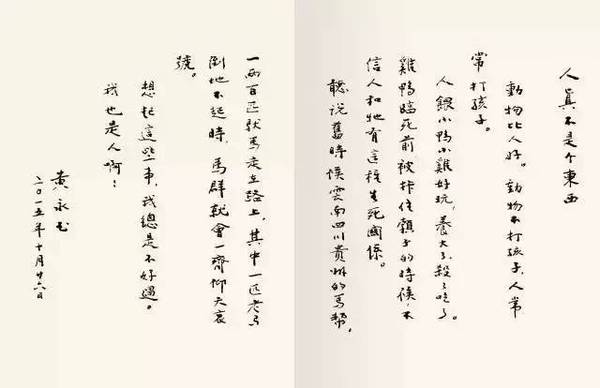 人真不是个東西
動物比人好。動物不打孩子,人常
常打孩子。
人跟小鴨小雞好玩,養大了,殺了吃了。
雞鴨臨死前被拤住頸子的時候,不
信人和牠有這種生死關係。
聽说舊時候雲南四川貴州的馬幫,
一兩百匹馱馬走在路上,其中一匹老馬
倒地不起時,馬群就會一齊仰天哀
號。
想起這些事,我總是不好過。
我也是人啊!
黄永玉
二〇一五年十月廿六日